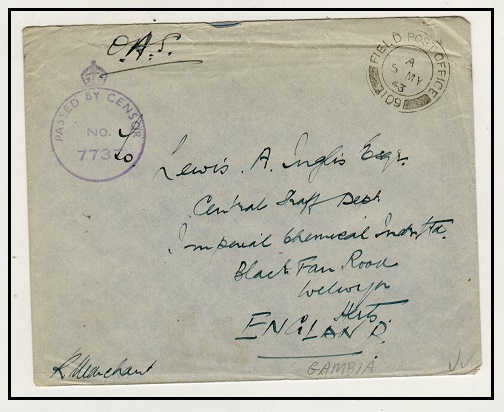 O.A.S.
FIELD POST OFFICE
A
5 MY
43
109
PASSED BY CENSOR
NO.
To
Lewis. A. Inglis Esqr.
Central Staff Dept
Imperial Chemical Indr. Ltd.
Black Fan Road
Welwyn
Herts.
ENGLAND.
R Marchant
GAMBIA